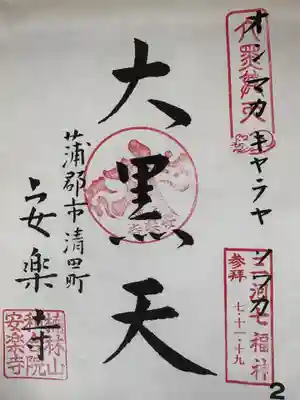 オン マカ キャラヤ ソワカ
三河七福神
参拝
七・十一・十九
大黒天
蒲郡市清田町
安楽寺
安楽寺
2